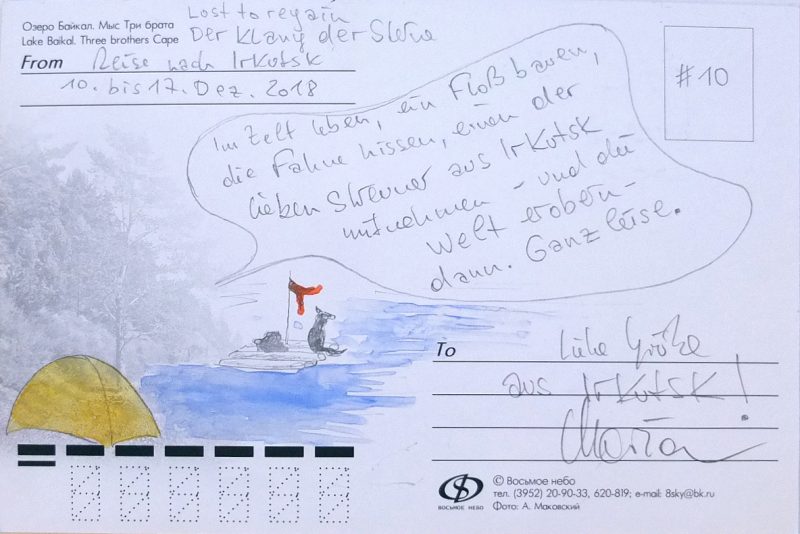 Lost to regain
Der Klang der Stille
Озеро Байкал. Мыс Три брата
Lake Baikal. Three brothers Cape
From Reise nach Irkutsk
10. bis 17. Dez. 2018
#10
Im Zelt leben, ein Floß bauen,
die Fahne hissen, einen der
lieben Streuner aus Irkutsk
mitnehmen - und die
Welt erobern -
dann. Ganz leise.
To Liebe Grüße
aus Irkutsk!
© Восьмое небо
тел. (3952) 20-90-33, 620-819; e-mail: 8sky@bk.ru
Фото: А. Маковский
ВОСЬМОЕ НЕБО